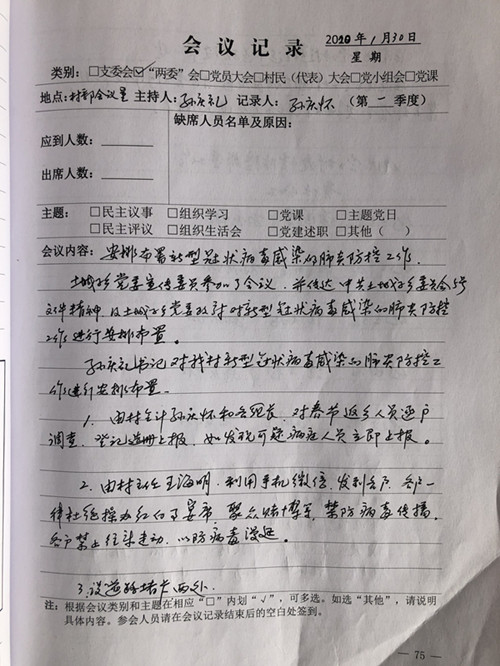 会议记录
2020年1月30日
星期
类别：□支委会☑“两委”会□党员大会□村民（代表）大会□党小组会□党课
地点：村部会议室 主持人：孙庆礼 记录人：孙庆怀（第一季度）
应到人数：
出席人数：
缺席人员名单及原因：
主题：□民主议事 □组织学习 □党课 □主题党日
□民主评议 □组织生活会 □党建述职 □其他（ ）
会议内容：安排布署新型冠状病毒感染的肺炎防控工作。
土城子乡党委宣传委员参加了会议，并传达中共土城子乡委员会5号
文件精神，及土城子乡党委政府对新型冠状病毒感染的肺炎防控
工作进行安排布置。
孙庆礼书记对我村新型冠状病毒感染的肺炎防控工
作进行安排布置。
1．由村会计孙庆怀和各组长，对春节返乡人员逐户
调查，登记造册上报，如发现可疑病症人员立即上报。
2．由村主任王海明，利用手机微信，发到各户，各户一
律杜绝操办红白事宴席，聚众赌博等，禁防病毒传播。
各户禁止往来走动，以防病毒漫延。
3．设道路堵卡两处。
注：根据会议类别和主题在相应“□”内划“√”，可多选。如选“其他”，请说明
具体内容。参会人员请在会议记录结束后的空白处签到。
— 75 —